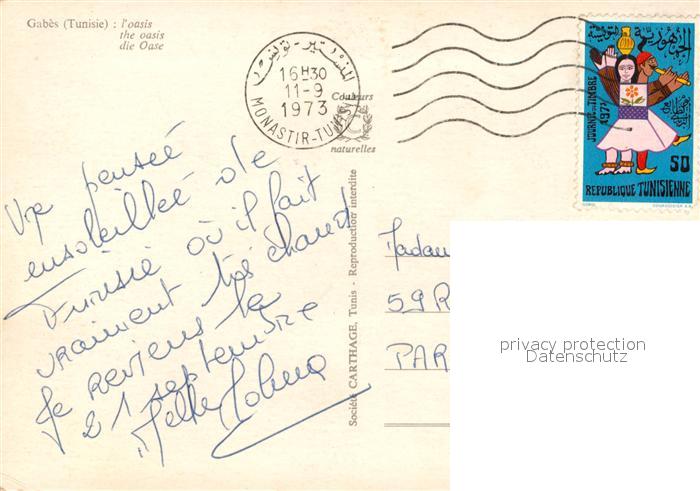 Gabès (Tunisie) : l'oasis
the oasis
die Oase
المنستير - تونس
16H30
11-9
1973
MONASTIR-TUNISIE
Couleurs
naturelles
الجمهورية التونسية
JOURNÉE DU TIMBRE
1973
50
REPUBLIQUE TUNISIENNE
Une pensée
ensoleillée de
Tunisie où il fait
vraiment très chaud
Je reviens le
21 septembre
Société CARTHAGE, Tunis - Reproduction interdite
Madam
59 R
PAR
privacy protection
Datenschutz